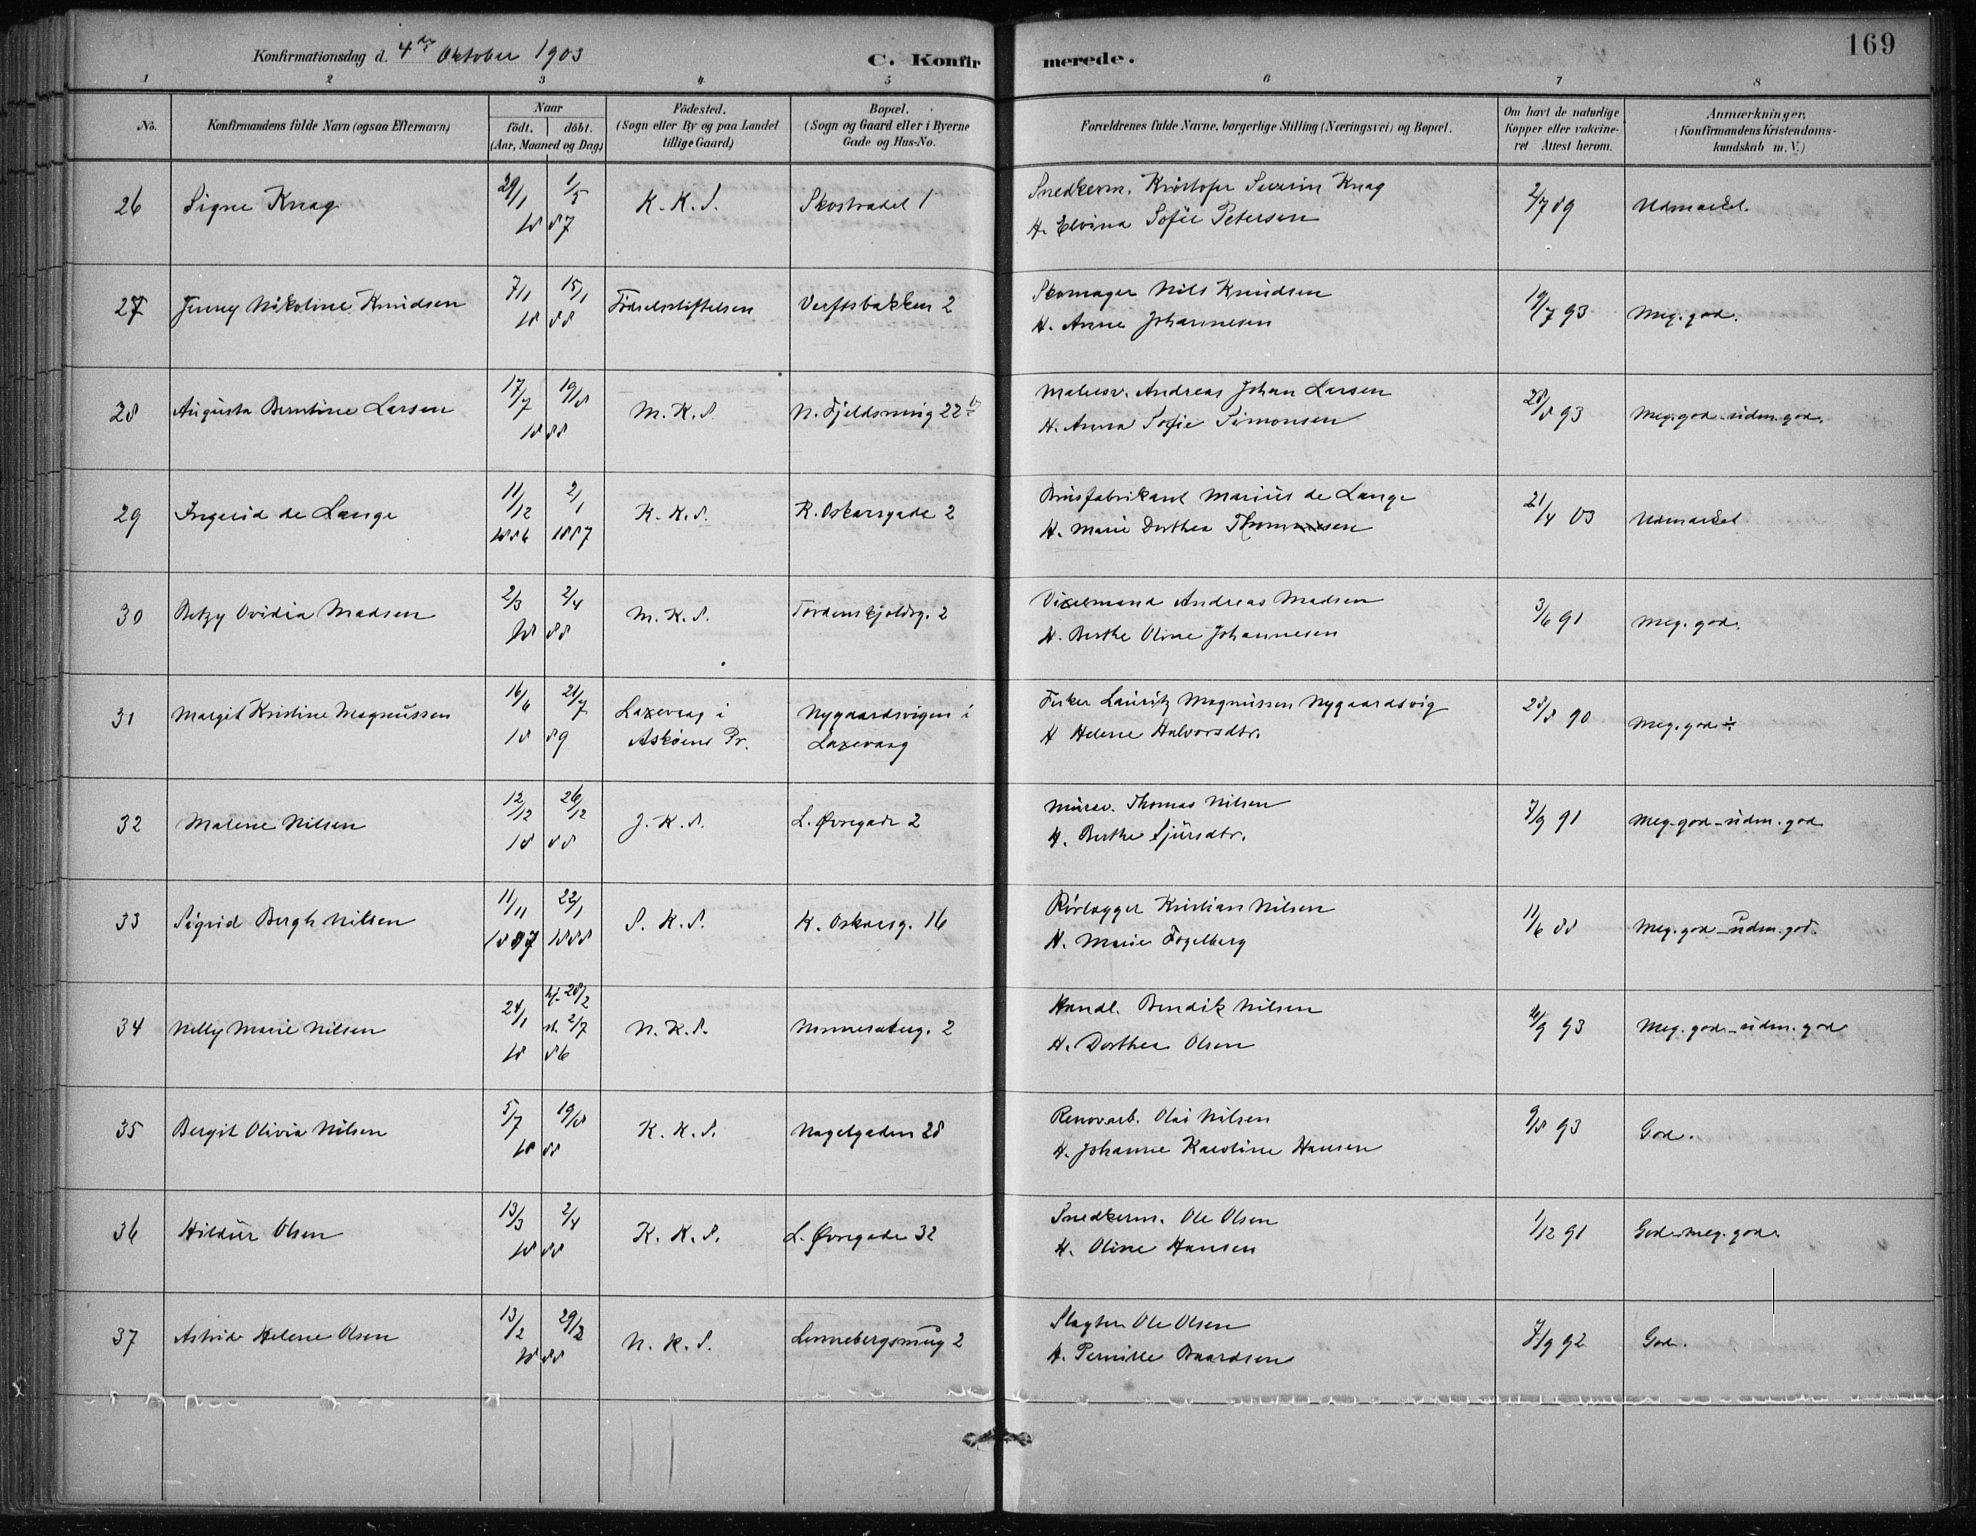 169
Konfirmationsdag d. 4de Oktober 1903
C. Konfirmerede.
1 2 3 4 5 6 7 8
No.
Konfirmandens fulde Navn (ogsaa Efternavn)
Naar
födt. döbt.
(Aar, Maaned og Dag)
Födested.
(Sogn eller By og paa Landet
tillige Gaard)
Bopæl.
(Sogn og Gaard eller i Byerne
Gade og Hus-No.
Forældrenes fulde Navne, borgerlige Stilling (Næringsvei) og Bopæl.
Om havt de naturlige
Kopper eller vakcine-
ret Attest herom.
Anmærkninger,
(Konfirmandens Kristendoms-
kundskab m. V.)
26 Signe Knag 29/1 1/5 K. K. S. Skostrædet 1 Snedkerm. Kristofer Severin Knag 2/7 89 Udmærket.
18 87 H. Elvina Sofie Petersen
27 Jenny Nikoline Knudsen 7/1 15/1 Fødselsstiftelsen Verftsbakken 2 Skomager Nils Knudsen 19/7 93 Meg. god.
18 88 H. Anne Johannesen
28 Augusta Berntine Larsen 17/7 19/8 M. K. S. N. Fjeldsmug 22 b Malersv. Andreas Johan Larsen 28/8 93 Meg. god - udm. god.
18 88 H. Anna Sofie Simonsen
29 Ingerid de Lange 11/12 2/1 K. K. S. K. Oskarsgade 2 Brusfabrikant Marius de Lange 21/4 03 Udmærket
1886 1887 H. Marie Dorthea Thommesen
30 Betzy Ovidia Madsen 2/3 2/4 M. K. S. Tordenskjoldsg. 2 Vixelmand Andreas Madsen 3/6 91 Meg. god.
18 88 H. Berthe Oline Johannesen
31 Margit Kristine Magnussen 16/6 21/7 Laxevaag i Nygaardsvigen i Fisker Lauritz Magnussen Nygaardsvig 28/8 90 Meg. god ÷
18 89 Askøens Pr. Laxevaag H Helene Halvorsdtr.
32 Malene Nilsen 12/12 26/12 J. K. S. L. Øvregade 2 Murer. Thomas Nilsen 7/9 91 Meg. god - udm. god
18 88 H. Berthe Sjursdtr.
33 Sigrid Bergh Nilsen 11/11 22/1 S. K. S. K. Oskarsg. 16 Rørlægger Kristian Nilsen 11/6 88 Meg. god - udm. god.
1887 1888 H. Marie Fogelberg
34 Nelly Marie Nilsen 24/1 hj. 28/2 N. K. S. 2 Handl. Bendik Nilsen 4/9 93 Meg. god - udm. god
st. 2/7
18 86 H. Dorthea Olsen
35 Bergit Olivia Nilsen 5/7 19/8 K. K. S. Nagelgaden 28 Renovarb. Olai Nilsen 9/8 93 God.
18 88 H. Johanne Karoline Hansen
36 Hildur Olsen 13/3 2/4 K. K. S. L. Øvregade 32 Snedkerm. Ole Olsen 1/12 91 God - meg. god.
18 88 H. Oline Hansen
37 Astrid Helene Olsen 13/2 29/2 N. K. S. Lennebergsmug 2 Slagter Ole Olsen 7/9 92 God.
18 88 H. Pernille Baardsen